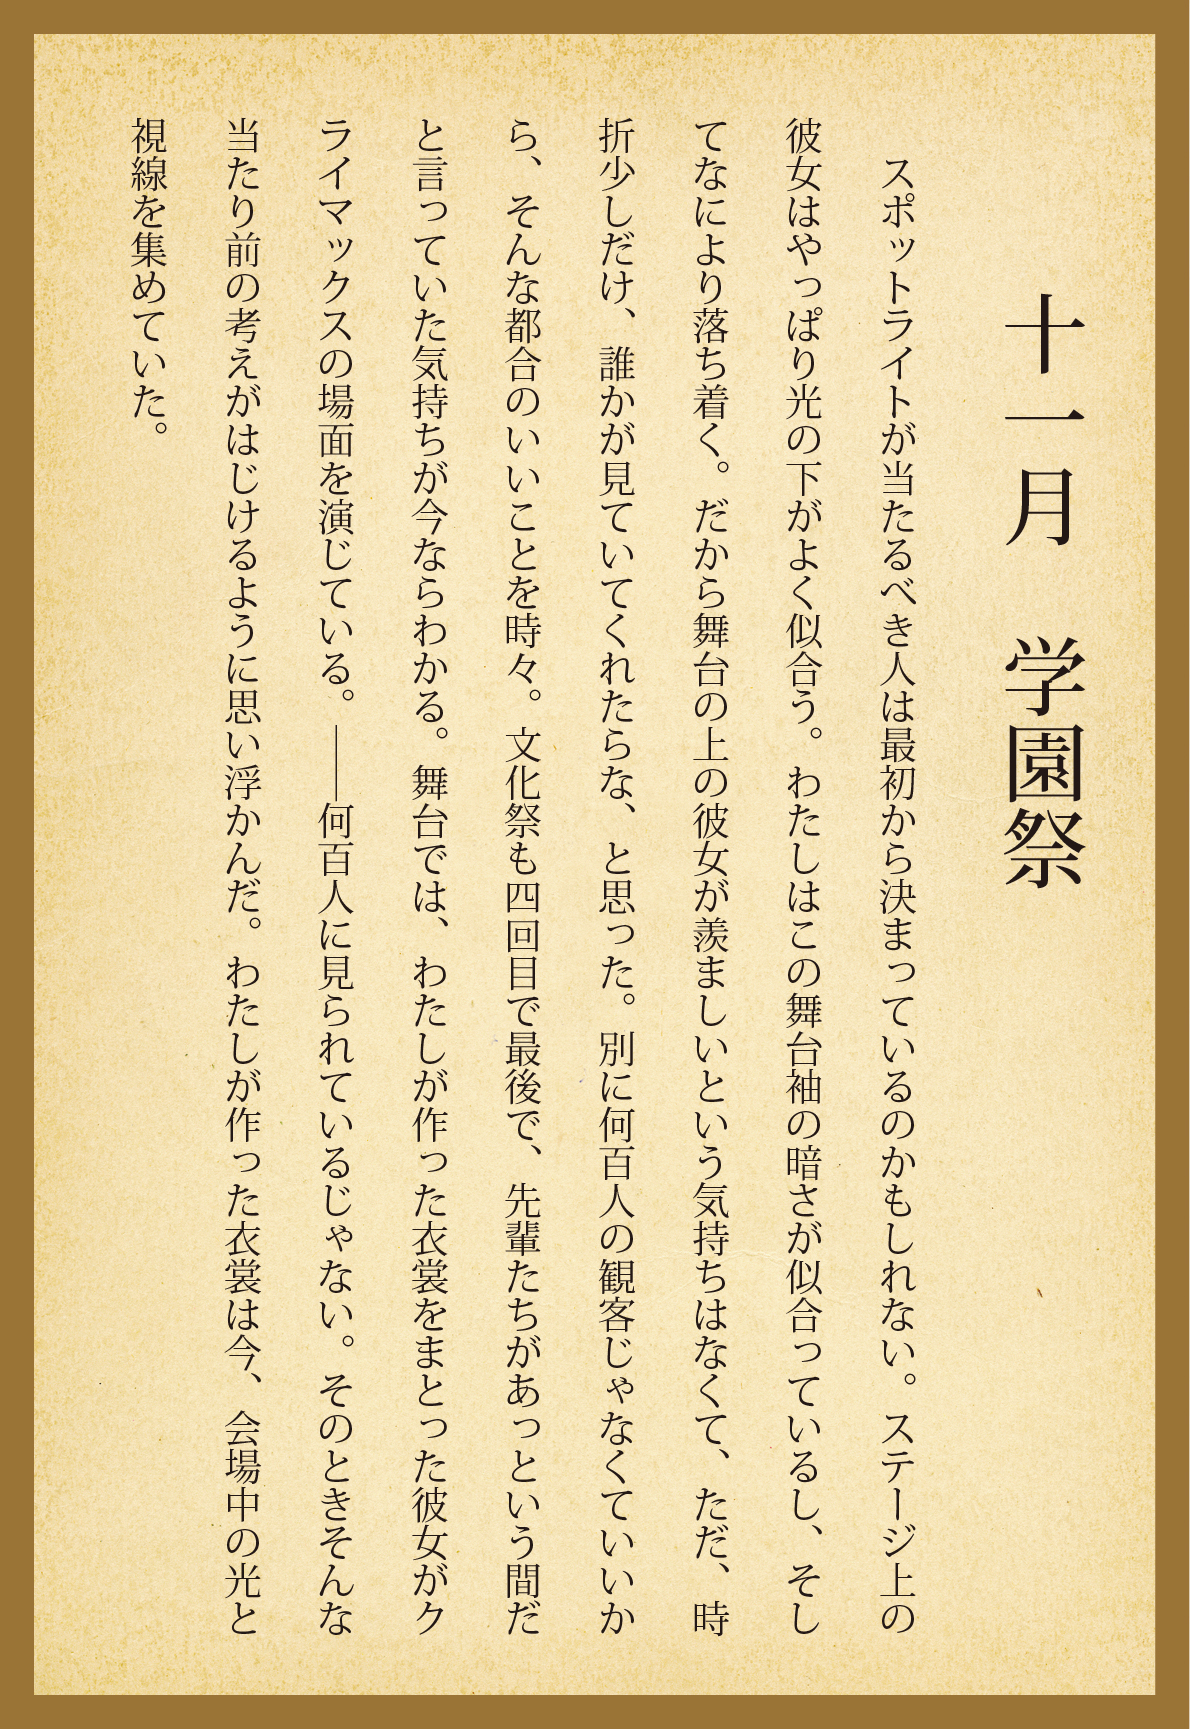 十一月　学園祭
　スポットライトが当たるべき人は最初から決まっているのかもしれない。ステージ上の
彼女はやっぱり光の下がよく似合う。わたしはこの舞台袖の暗さが似合っているし、そし
てなにより落ち着く。だから舞台の上の彼女が羨ましいという気持ちはなくて、ただ、時
折少しだけ、誰かが見ていてくれたらな、と思った。別に何百人の観客じゃなくていいか
ら、そんな都合のいいことを時々。文化祭も四回目で最後で、先輩たちがあっという間だ
と言っていた気持ちが今ならわかる。舞台では、わたしが作った衣裳をまとった彼女がク
ライマックスの場面を演じている。――何百人に見られているじゃない。そのときそんな
当たり前の考えがはじけるように思い浮かんだ。わたしが作った衣裳は今、会場中の光と
視線を集めていた。